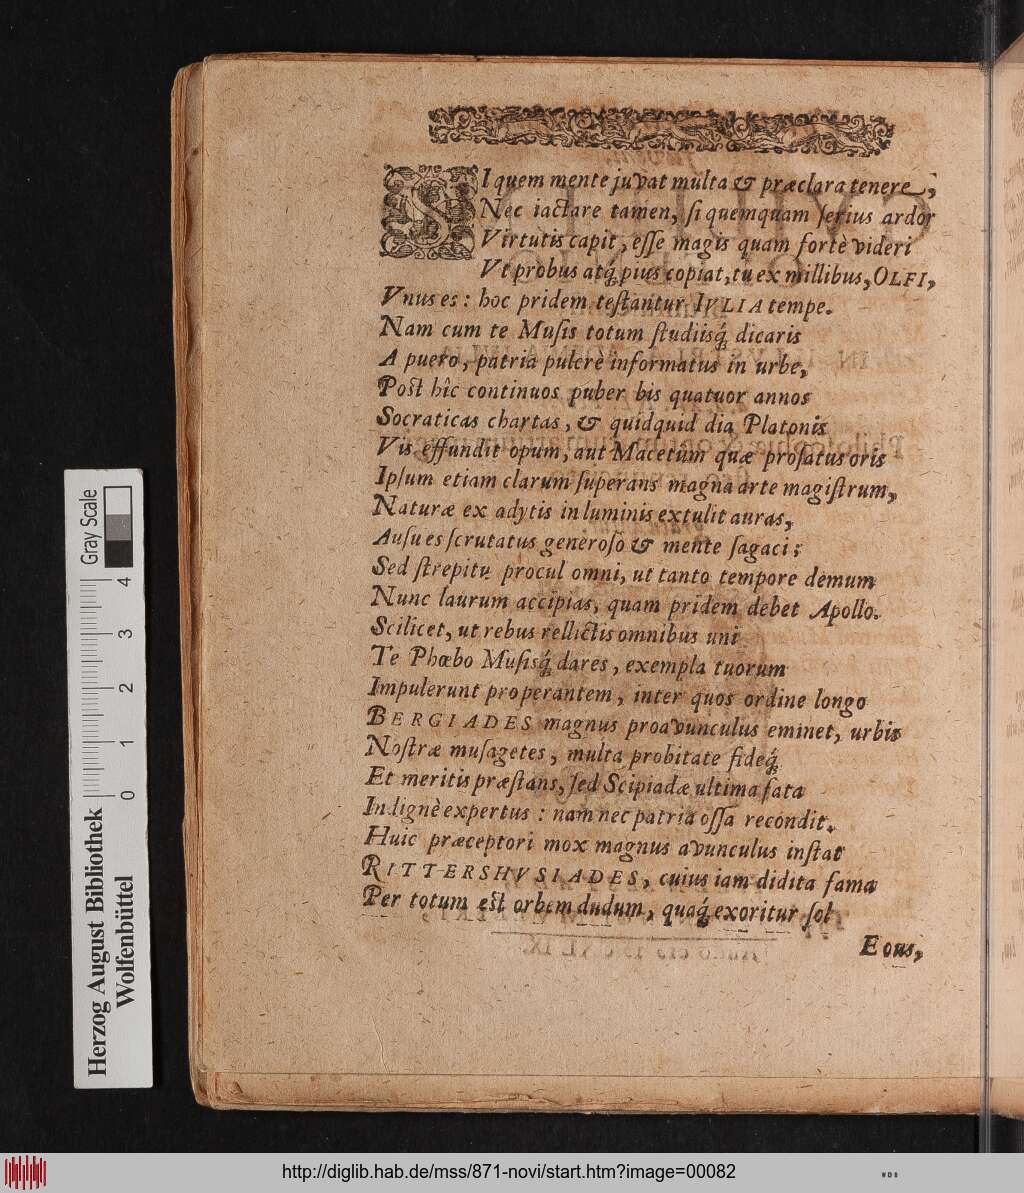 SI quem mente juvat multa & præclara tenere,
Nec iactare tamen, si quemquam serius ardor
Virtutis capit, esse magis quam fortè videri
Vt probus atq́; pius copiat, tu ex millibus, OLFI,
Vnus es: hoc pridem testantur IVLIA tempe.
Nam cum te Musis totum studiisq́; dicaris
A puero, patria pulcrè informatus in urbe,
Post hîc continuos puber bis quatuor annos
Socraticas chartas, & quidquid dia Platonis
Vis effundit opum, aut Macetûm quæ prosatus oris
Ipsum etiam clarum superans magna arte magistrum,
Naturæ ex adytis in luminis extulit auras,
Ausu es scrutatus generoso & mente sagaci;
Sed strepitu procul omni, ut tanto tempore demum
Nunc laurum accipias, quam pridem debet Apollo.
Scilicet, ut rebus rellictis omnibus uni
Te Phœbo Musisq́; dares, exempla tuorum
Impulerunt properantem, inter quos ordine longo
BERGIADES magnus proavunculus eminet, urbis
Nostræ musagetes, multa probitate fideq́;
Et meritis præstans, sed Scipiadæ ultima fata
Indignè expertus: nam nec patria ossa recondit.
Huic præceptori mox magnus avunculus instat
RITTERSHVSIADES, cuius iam didita fama
Per totum est orbem dudum, quaq́; exoritur sol
Eous,
Herzog August Bibliothek
Wolfenbüttel
0 1 2 3 4
Gray Scale
http://diglib.hab.de/mss/871-novi/start.htm?image=00082